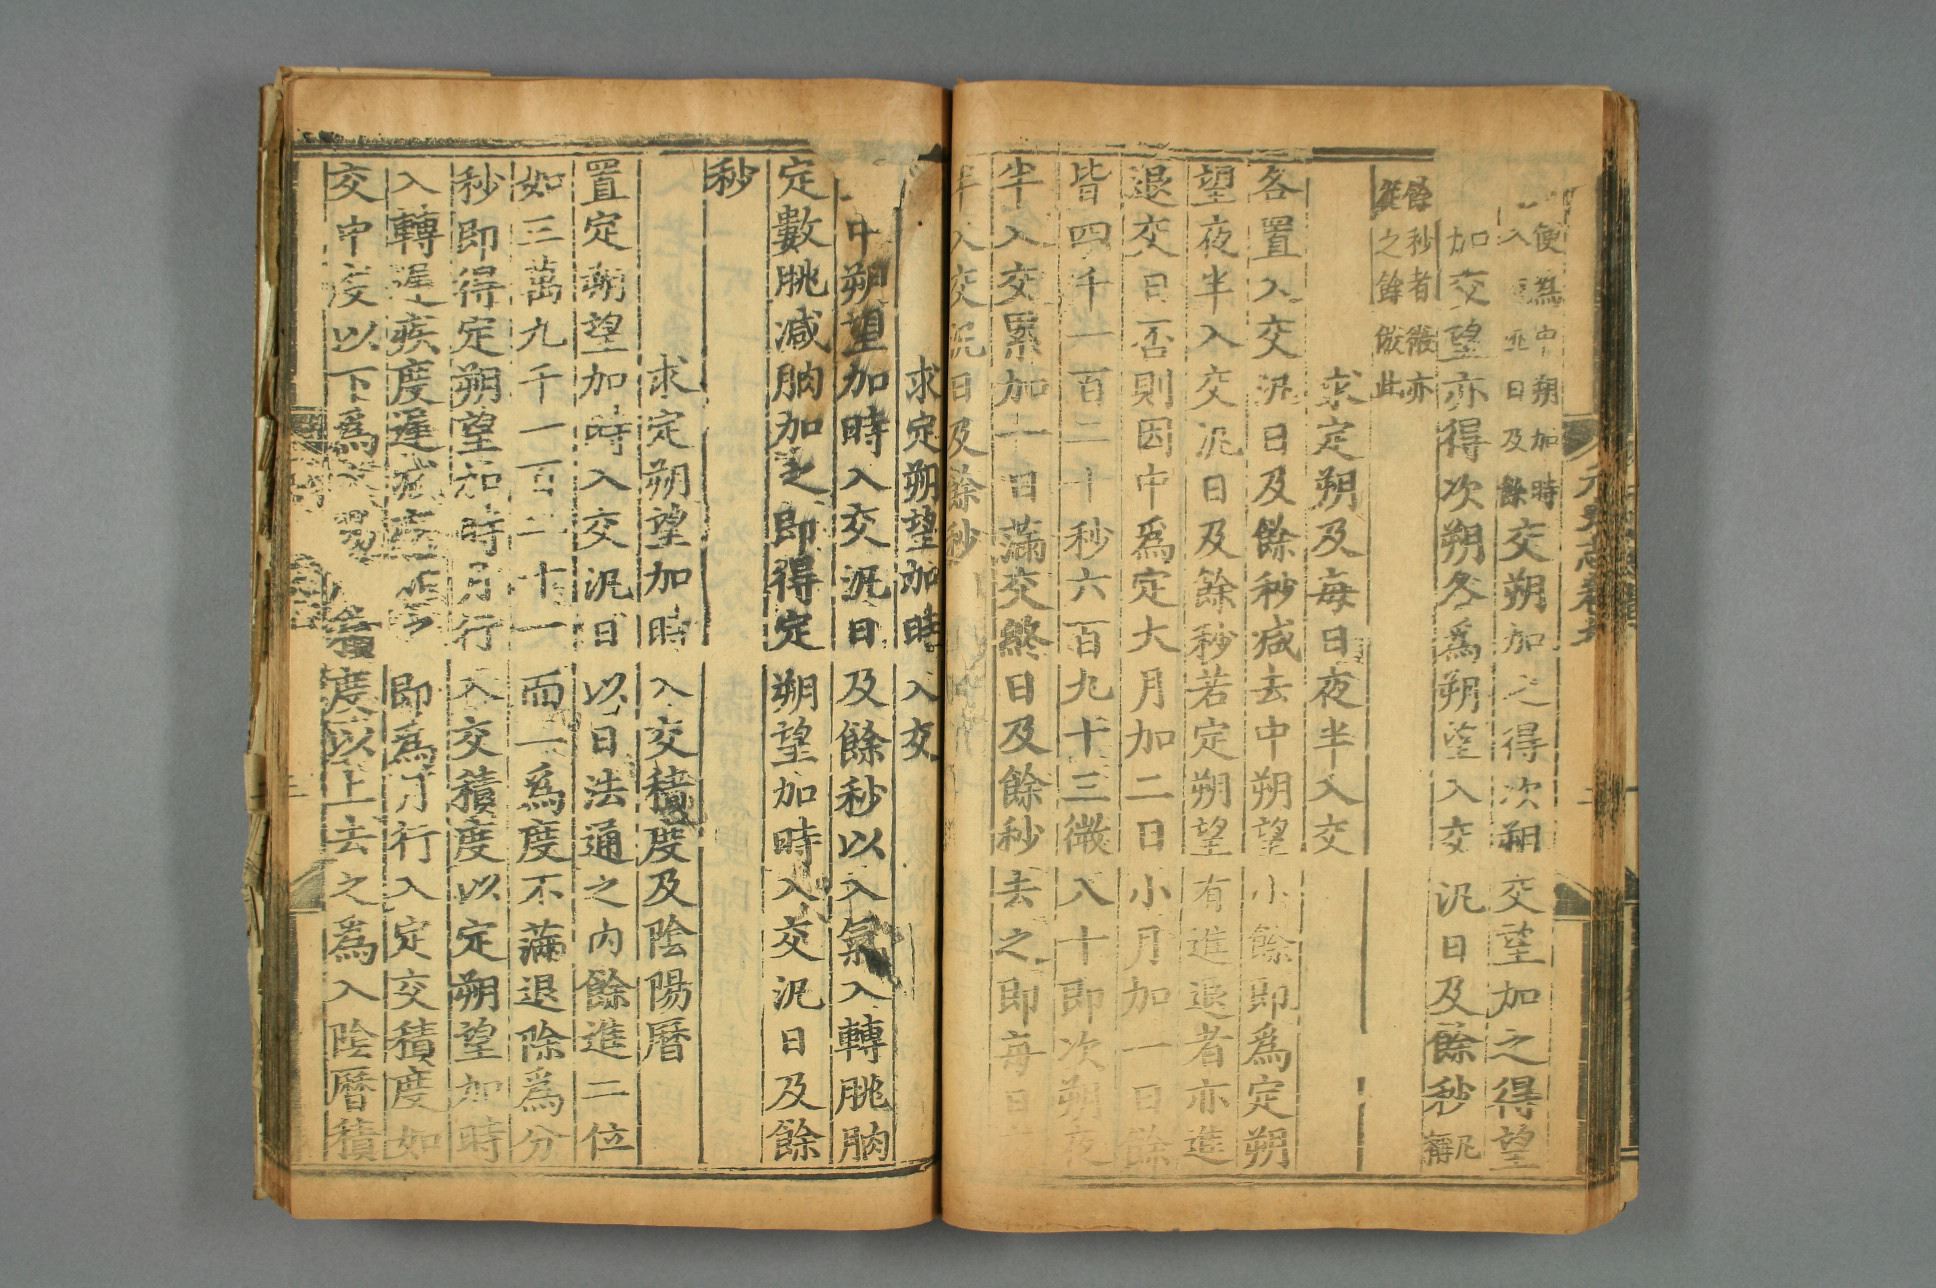 便為中朔加時
入
日及餘
交朔加之得次朔交望加之得望
加交望亦得次朔各爲朔望入交汎日及餘秒
凡稱
餘秒者微亦
從之餘倣此
求定朔及每日夜半入交
各置入交汎日及餘秒减去中朔望小餘即爲定朔
望夜半入交汎日及餘秒若定朔望有進退者亦進
退交日否則因中爲定大月加二日小月加一日餘
皆四千一百二十秒六百九十三微八十即次朔夜
半入交累加一日滿交終日及餘秒去之即每日
半入交汎日及餘秒
求定朔望加時入交
中朔望加時入交汎日及餘秒以入氣入轉朓朒
定數朓减朒加之即得定朔望加時入交汎日及餘
秒
求定朔望加時入交積度及陰陽曆
置定朔望加時入交汎日以日法通之内餘進二位
如三萬九千一百二十一而一爲度不滿退除爲分
秒即得定朔望加時月行入交積度以定朔望加時
入轉遲疾度遲减疾即爲月行入定交積度如
交中度以下爲積度以上去之爲入陰曆積
元史志卷九